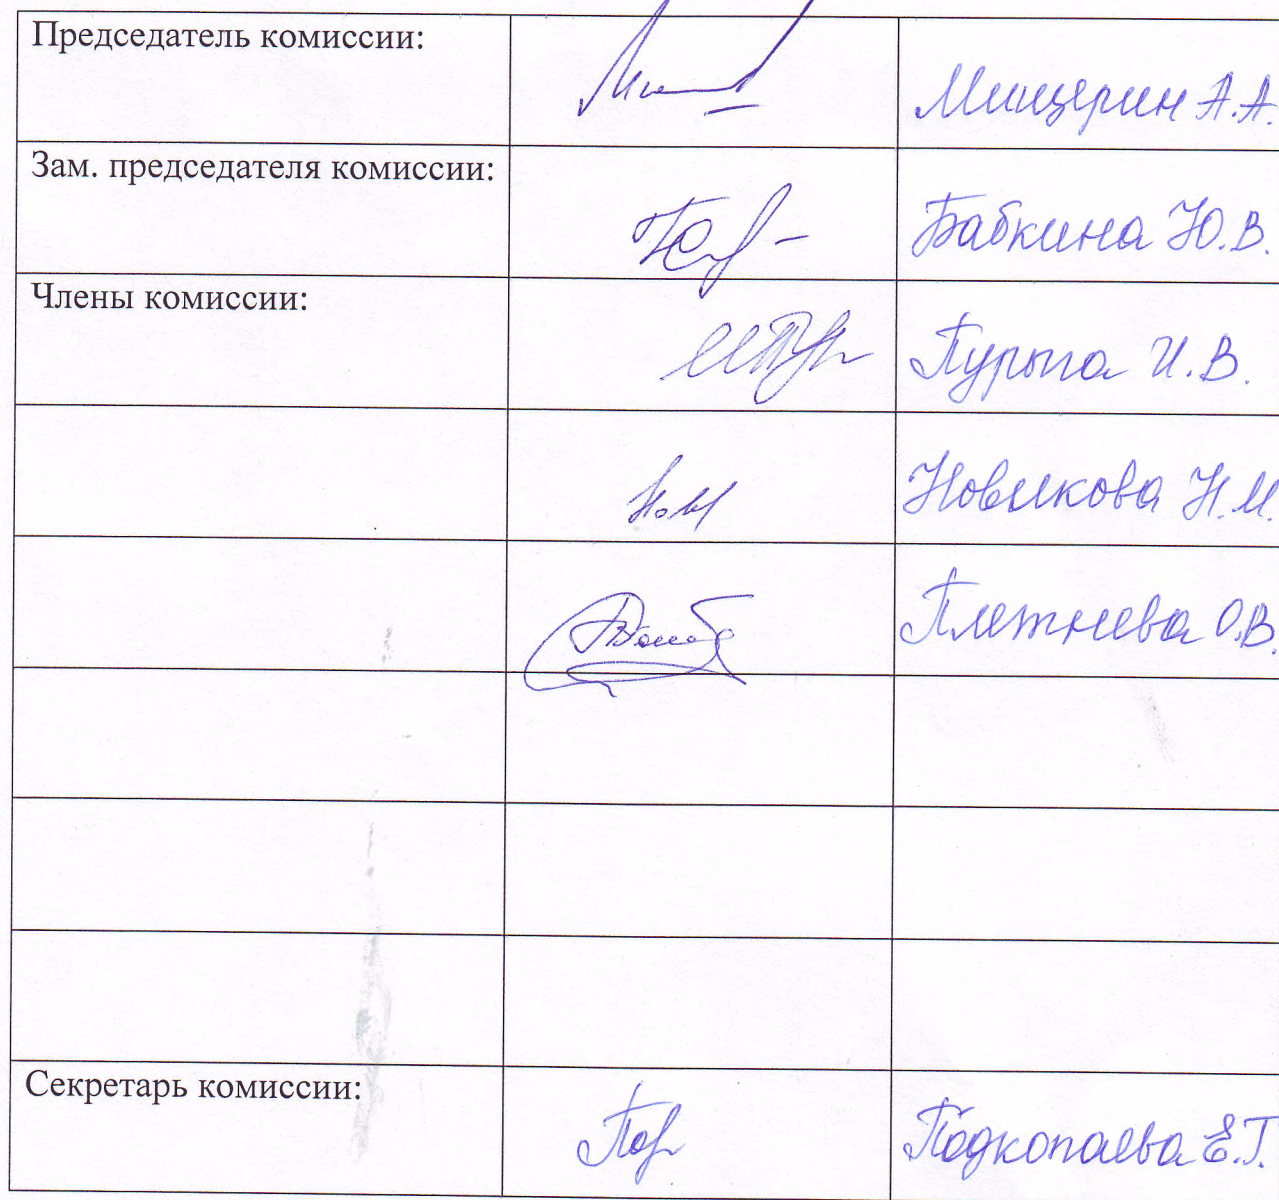 Председатель комиссии: Мищерин А.А.
Зам. председателя комиссии: Бабкина Ю.В.
Члены комиссии: Пурыга И.В.
Новикова Н.М.
Плетнева О.В.
Секретарь комиссии: Подкопаева Е.Г.